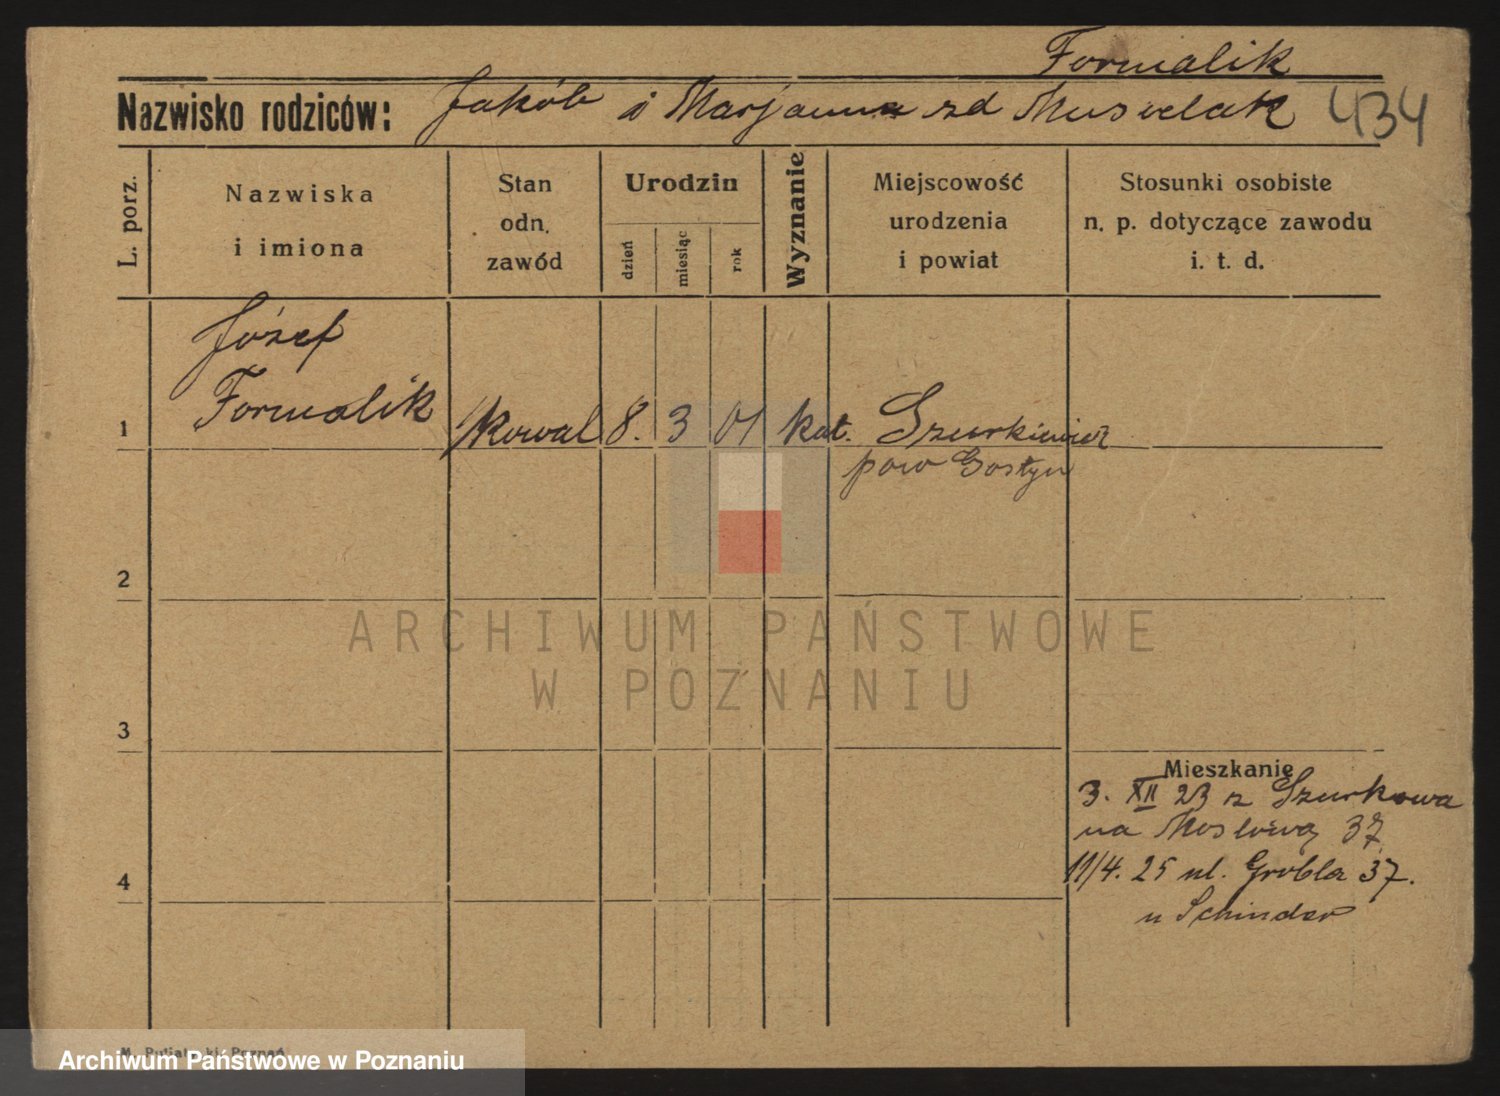 Formalik
Nazwisko rodziców: Jakób i Marjanna zd Musielak 434
L. porz.
Nazwiska
i imiona
Stan
odn.
zawód
Urodzin
dzień
miesiąc
rok
Wyznanie
Miejscowość
urodzenia
i powiat
Stosunki osobiste
n. p. dotyczące zawodu
i. t. d.
Józef
Formalik
1 Kowal 8. 3 01 kat. Szurkiewicz
pow Gostyn
2
3
4
Mieszkanie
3. XII 23 z Szurkowa
na Mostową 37
11/4. 25 ul. Grobla 37.
u Schinder
ARCHIWUM PAŃSTWOWE
W POZNANIU
Archiwum Państwowe w Poznaniu